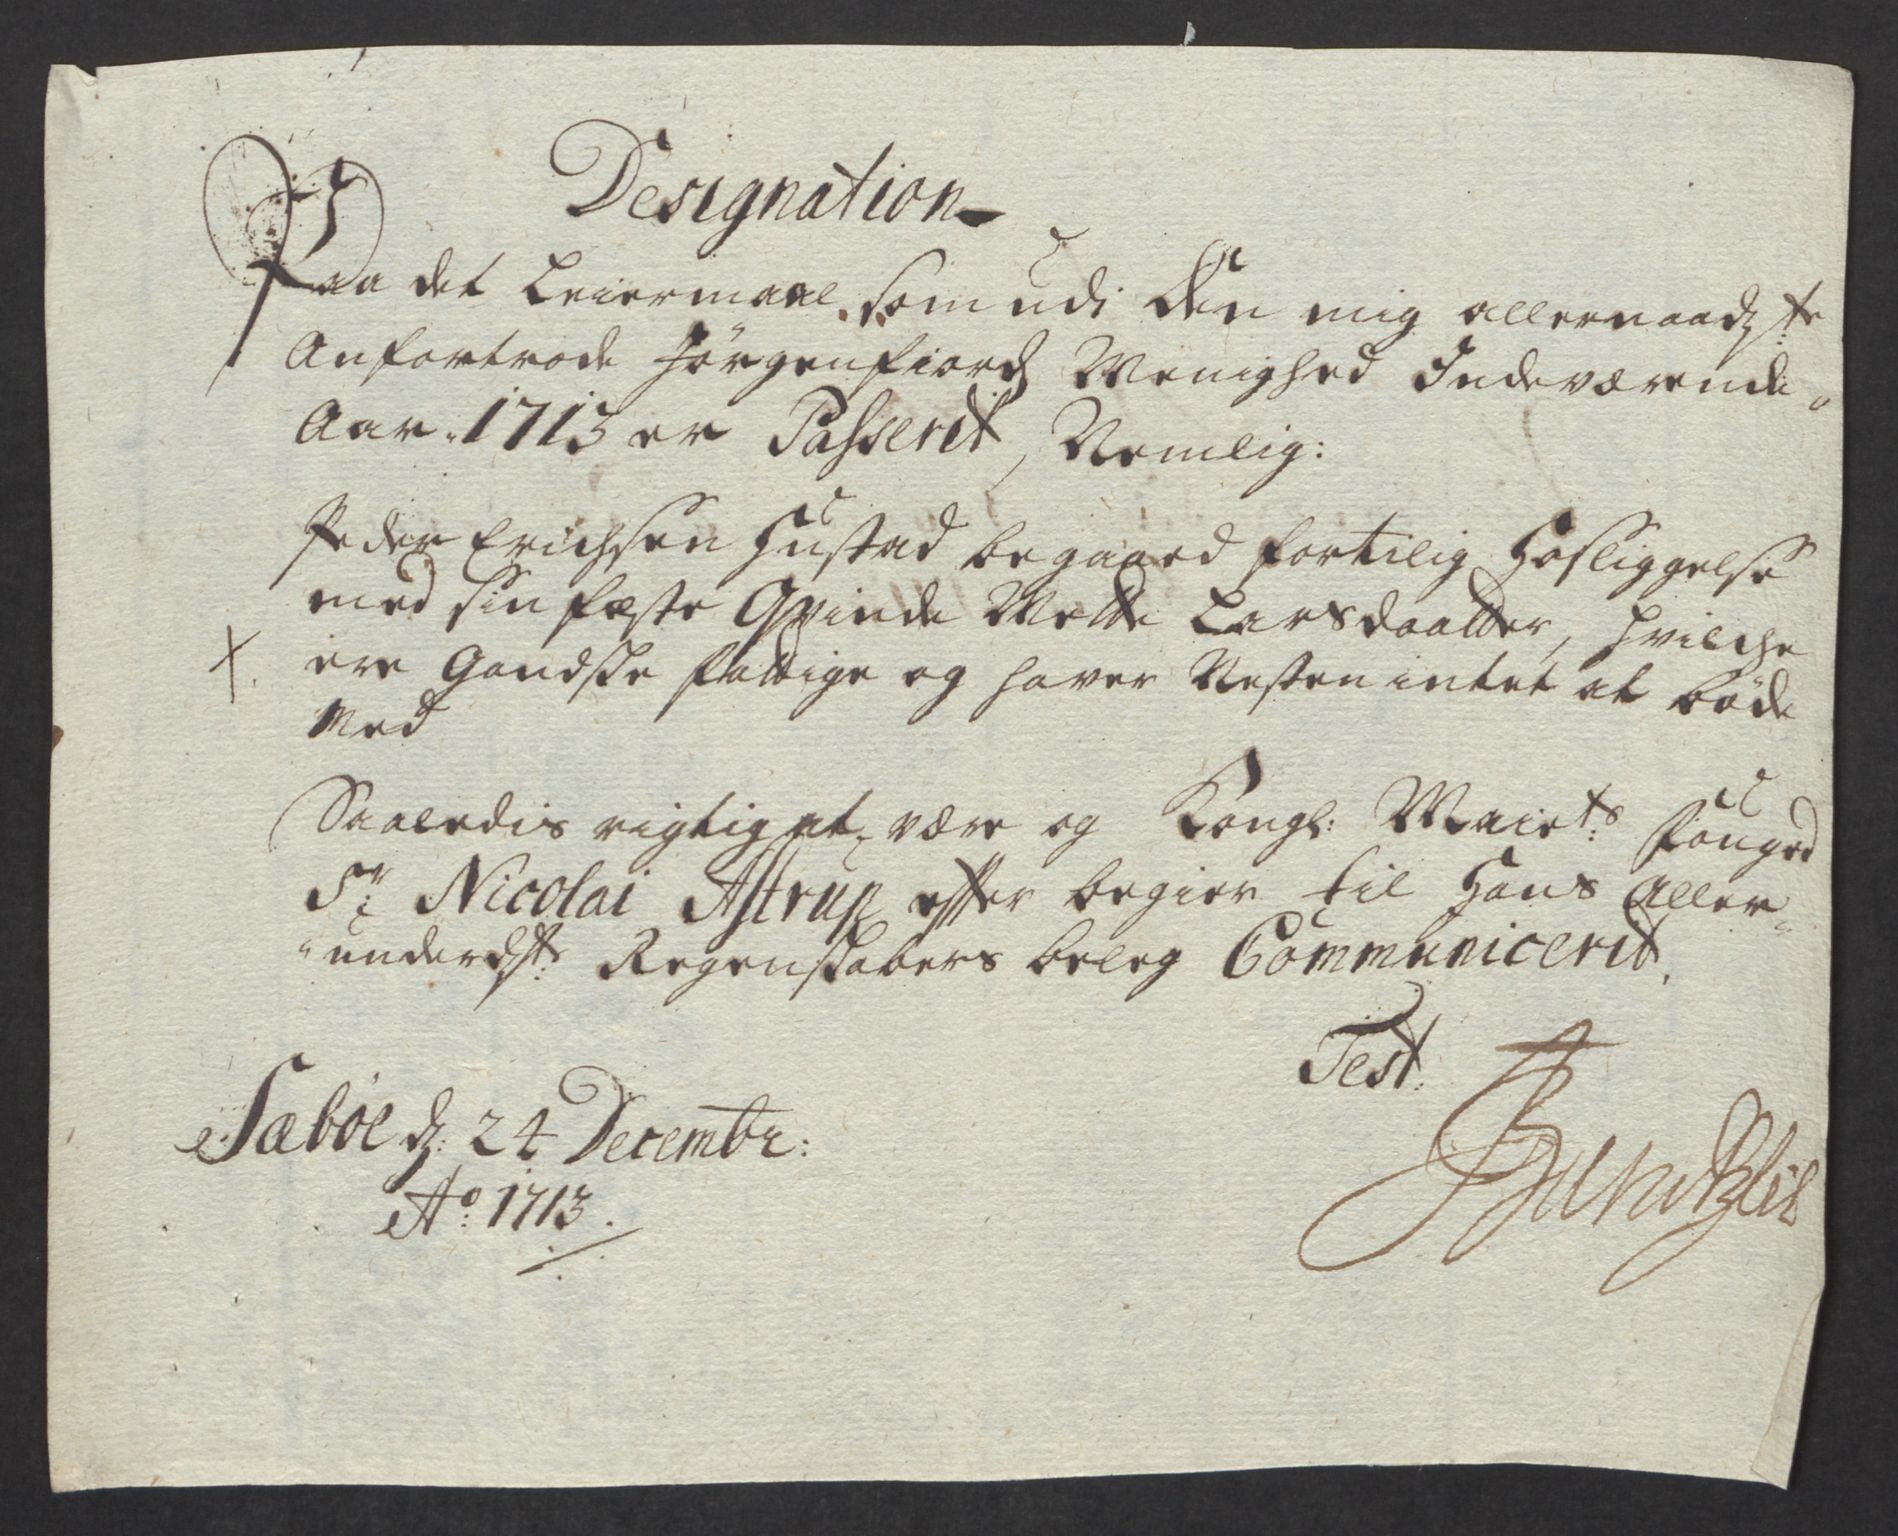 Designation
Paa det Leiermaal som udi den mig allernaadste
Anfortrode Jørgenfiords Menighed Indeværende
Aar 1713 er Passerit, Nemlig:
Peder Erichsen Hustad begaaed fortilig Hosliggelse
med sin feste Qvinde Mette Larsdaatter, hvilche
X. ere Gandske fattige og haver Nesten intet at böde
Med
Saaledis rigtig at være og Kongl: Maiets: Fouged
Sr: Nicolai Astrup effter begier til Hans Aller-
underdst: Regenskabers beleg Communicerit.
Test:
Sæbøe d: 24 Decembr:
Ao: 1713.